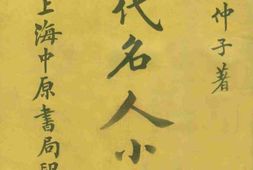 仲子著
代名人小
上海中原書局印